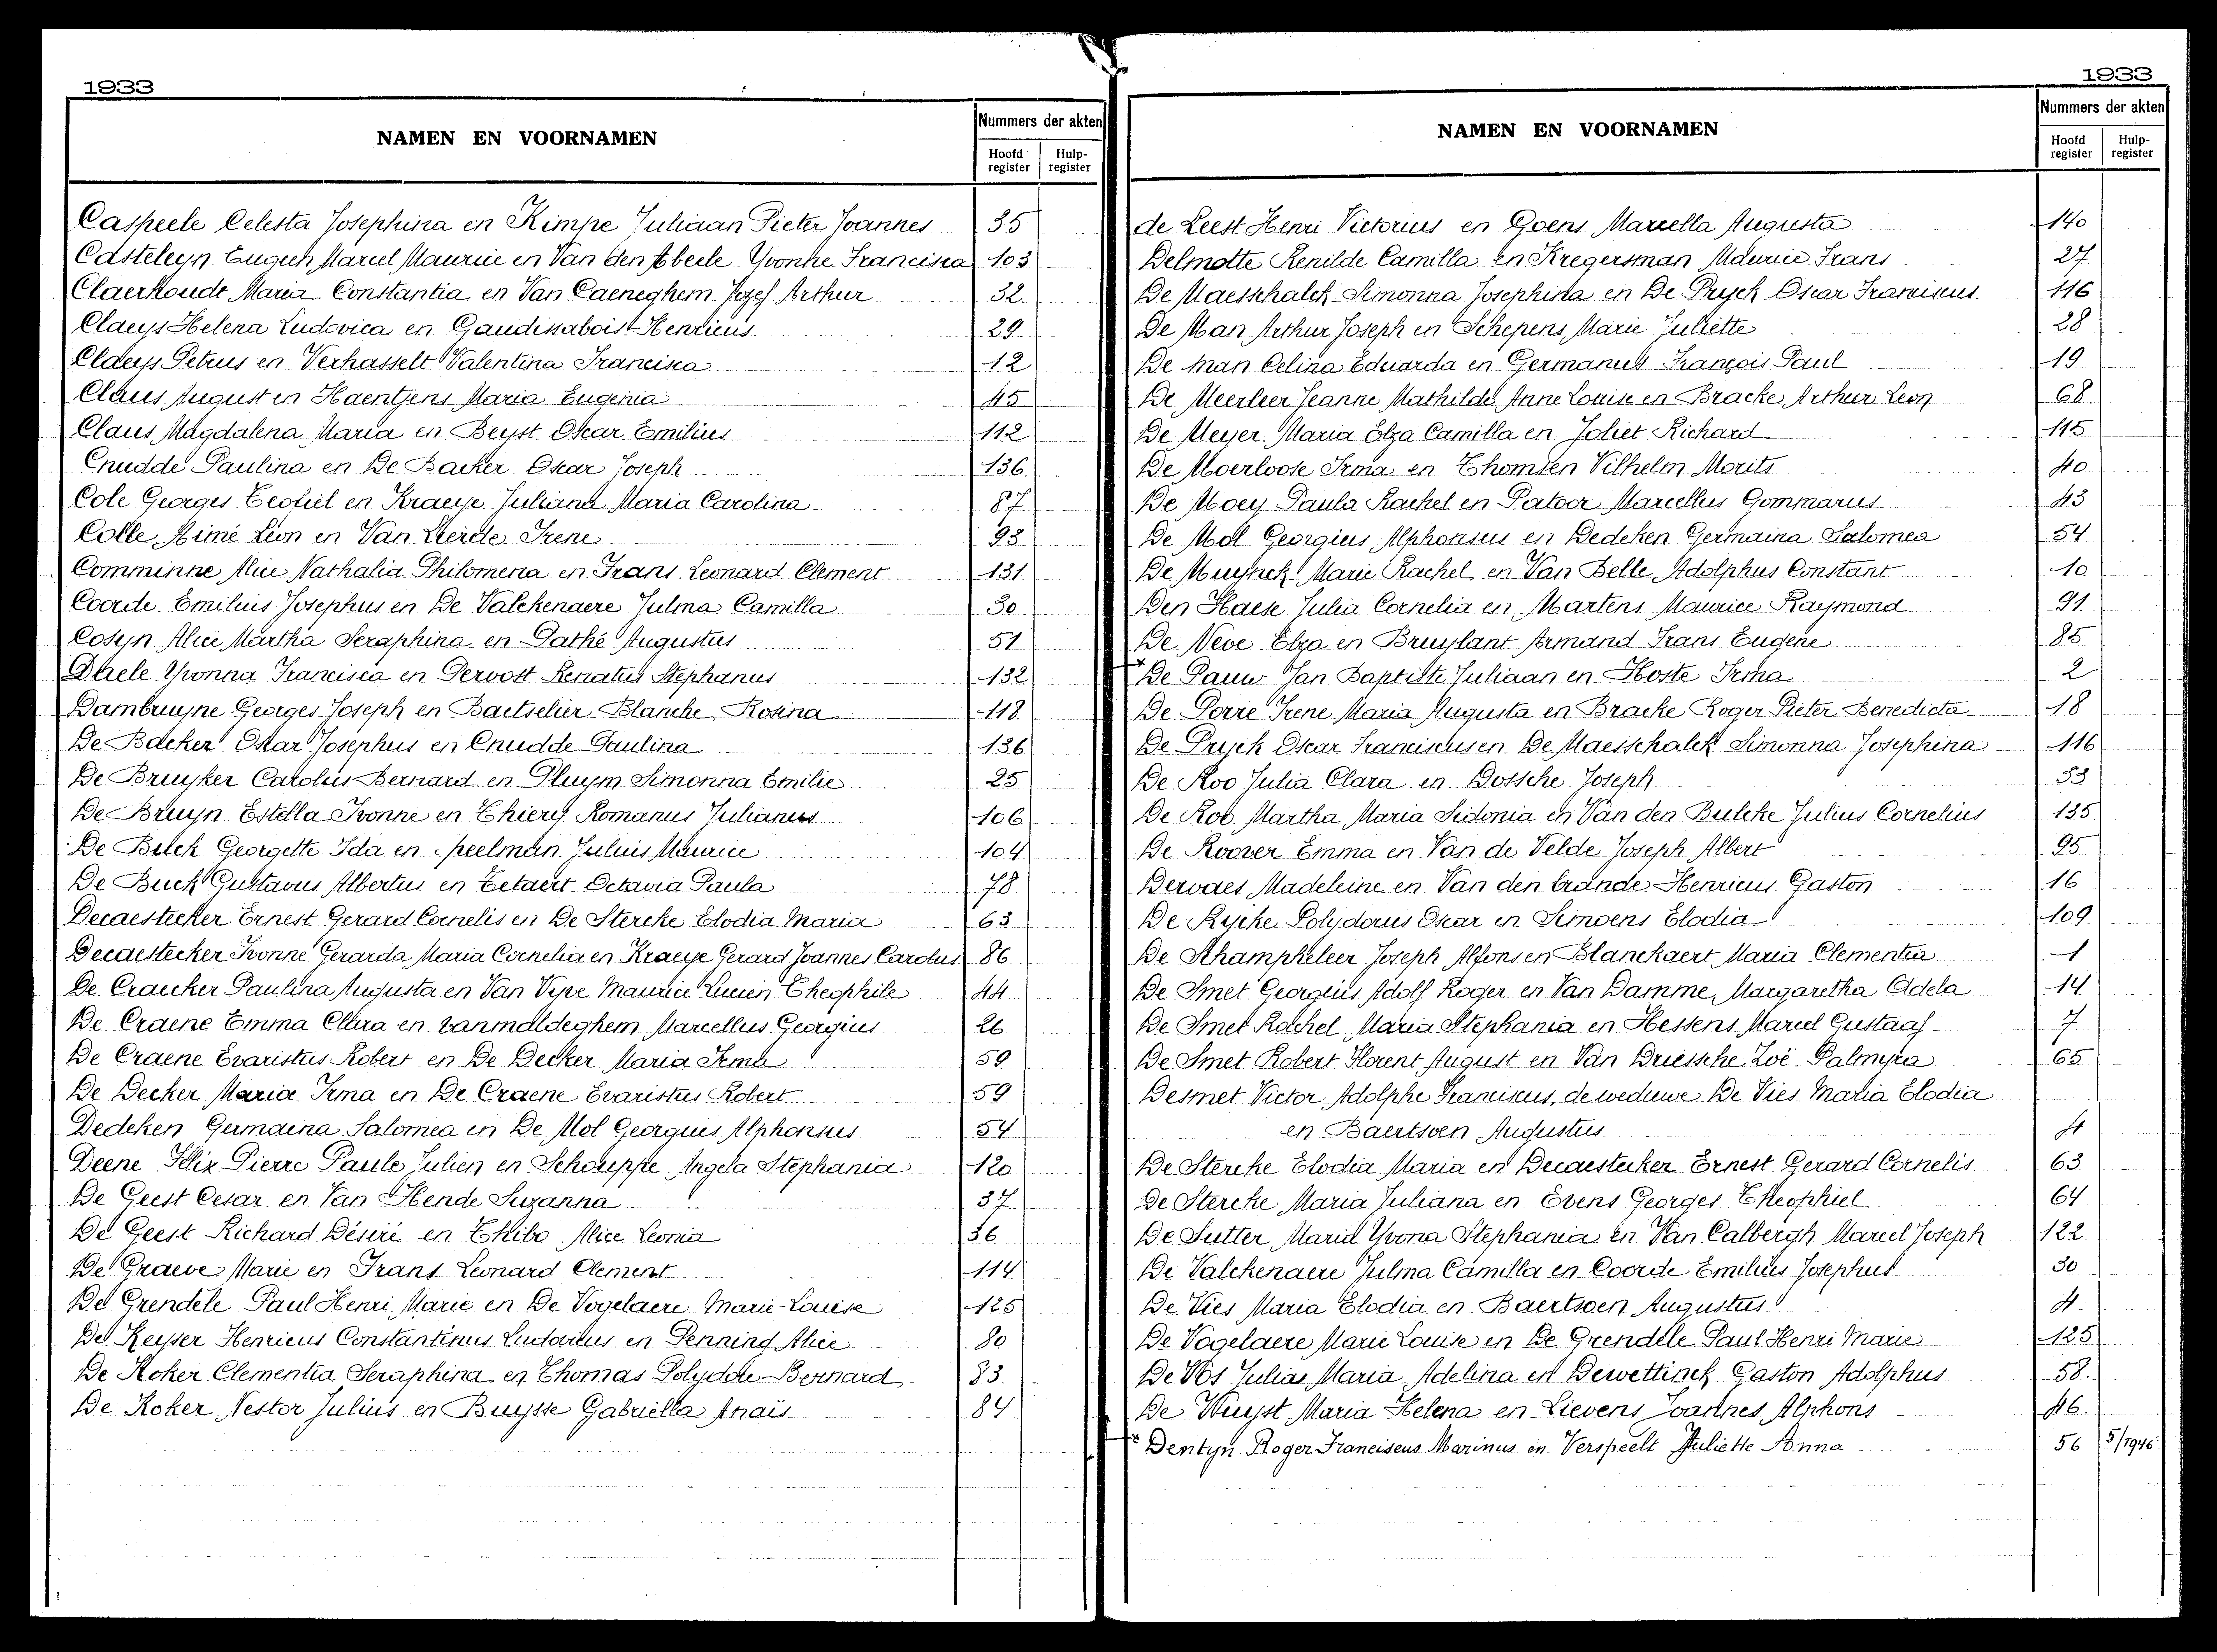 1933
NAMEN EN VOORNAMEN
Nummers der akten
Hoofd register
Hulp-register
Caspeele Celesta Josephina en Kimpe Juliaan Pieter Joannes 35
Casteleyn Eugeen Marcel Maurice en Van den Abeele Yvonne Francisca 103
Claerhoudt Maria Constantia en Van Caeneghem Jozef Arthur 32
Claeys Helena Ludovica en Gaudissabois Henricus 29
Claeys Petrus en Verhasselt Valentina Francisca 12
Claus August en Haentjens Maria Eugenia 45
Claus Magdalena Maria en Beyst Oscar Emilius 112
Cnudde Paulina en De Backer Oskar Joseph 136
Cole Georges Teofiel en Kraeye Juliana Maria Carolina 87
Colle Aimé Léon en Van Lierde Irene 93
Comminne Alice Nathalia Philomena en Frans Leonard Clement 131
Coorde Emilius Josephus en De Valckenaere Julma Camilla 30
Cosyn Alice Martha Seraphina en Pathé Augustus 51
Daele Yvonna Francisca en Pervost Renatus Stephanus 132
Dambruyne Georges Joseph en Baetselier Blanche Rosina 118
De Backer Oskar Josephus en Cnudde Paulina 136
De Bruyker Carolus Bernard en Pluym Simonna Emilie 25
De Bruyn Estella Ivonne en Thiery Romanus Julianus 106
De Buck Georgette Ida en Speelman Julius Maurice 104
De Buck Gustavus Albertus en Tetaert Octavia Paula 78
Decaestecker Ernest Gerard Cornelis en De Stercke Elodia Maria 63
Decaestecker Ivonne Gerarda Maria Cornelia en Kraeye Gerard Joannes Carolus 86
De Craecker Paulina Augusta en Van Vyve Maurice Lucien Theophile 44
De Craene Emma Clara en Vanmaldeghem Marcellus Georgius 26
De Craene Evaristus Robert en De Decker Maria Irma 59
De Decker Maria Irma en De Craene Evaristus Robert 59
Dedeken Germaina Salomea en De Mol Georgius Alphonsus 54
Deene Félix Pierre Paule Julien en Schouppe Angela Stephania 120
De Geest Cesar en Van Hende Suzanna 37
De Geest Richard Désiré en Thibo Alice Leonia 36
De Graeve Marie en Frans Leonard Clement 114
De Grendele Paul Henri Marie en De Vogelaere Marie-Louise 125
De Keyser Henricus Constantinus Ludovicus en Penning Alice 80
De Koker Clementia Seraphina en Thomas Polydore Bernard 83
De Koker Nestor Julius en Buysse Gabriella Anaïs 84
1933
NAMEN EN VOORNAMEN
Nummers der akten
Hoofd register
Hulp-register
de Leest Henri Victorius en Goens Marcella Augusta 140
Delmotte Renilde Camilla en Kregersman Maurice Frans 27
De Maesschalck Simonna Josephina en De Pryck Oscar Franciscus 116
De Man Arthur Joseph en Schepens Marie Juliette 28
De man Celina Eduarda en Germanus François Paul 19
De Meerleer Jeanne Mathilde Anne Louise en Bracke Arthur Leon 68
De Meyer Maria Elza Camilla en Joliet Richard 115
De Moerloose Irma en Thomsen Vilhelm Morits 40
De Moey Paula Rachel en Patoor Marcellus Gommarus 43
De Mol Georgius Alphonsus en Dedeken Germaina Salomea 54
De Muynck Marie Rachel en Van Belle Adolphus Constant 10
Den Haese Julia Cornelia en Martens Maurice Raymond 91
De Neve Elza en Bruylant Armand Frans Eugene 85
De Pauw Jan Baptiste Juliaan en Hoste Irma 2
De Porre Irene Maria Augusta en Bracke Roger Pieter Benedicta 18
De Pryck Oscar Franciscus en De Maesschalck Simonna Josephina 116
De Roo Julia Clara en Dossche Joseph 53
De Roo Martha Maria Sidonia en Van den Bulcke Julius Cornelius 135
De Roover Emma en Van de Velde Joseph Albert 95
Dervaes Madeleine en Van den brande Henricus Gaston 16
De Rycke Polydorus Oscar en Simoens Elodia 109
De Schampheleer Joseph Alfons en Blanckaert Maria Clementia 1
De Smet Georgius Adolf Roger en Van Damme Margaretha Adela 14
De Smet Rachel Maria Stephania en Hessens Marcel Gustaaf 7
De Smet Robert Florent August en Van Driessche Zoë Palmyra 65
Desmet Victor Adolphe Franciscus, de weduwe De Vies Maria Elodia
en Baertsoen Augustus 4
De Stercke Elodia Maria en Decaestecker Ernest Gerard Cornelis 63
De Stercke Maria Juliana en Evens Georges Theophiel 64
De Sutter Maria Yvona Stephania en Van Calbergh Marcel Joseph 122
De Valckenaere Julma Camilla en Coorde Emilius Josephus 30
De Vies Maria Elodia en Baertsoen Augustus 4
De Vogelaere Marie Louise en De Grendele Paul Henri Marie 125
De Vos Julia Maria Adelina en Dewettinck Gaston Adolphus 58
De Wuyst Maria Helena en Lievens Joannes Alphons 46
Dentyn Roger Franciscus Marinus en Verspeelt Juliette Anna 56 5/1946